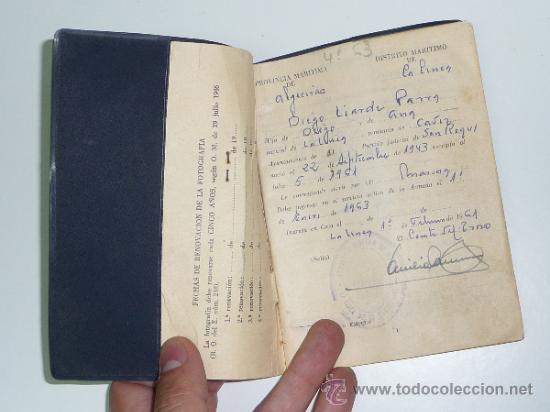 FECHAS DE RENOVACION DE LA FOTOGRAFIA
La fotografía debe renovarse cada CINCO AÑOS, según O. M. de 29 julio 1946
(B. O. del E. núm. 218).
1.ª renovación: de de 19
2.ª renovación: de de
3.ª renovación: de de
4.ª renovación: de de
4º 63
PROVINCIA MARITIMA
DE
Algeciras
DISTRITO MARITIMO
DE
La Linea
Diego Liarde Parra
Hijo de Diego y de Ana
natural de La Linea provincia de Cadiz
Ayuntamiento de Partido judicial de San Roque
nació el 22 de Septiembre de 1943
Julio 5 de 1961
Le corresponde servir por su
Debe ingresar en el servicio activo de la Armada el 1º
de Enero de 1963
La Linea 1º de 1961
El
(Sello)
www.todocoleccion.net